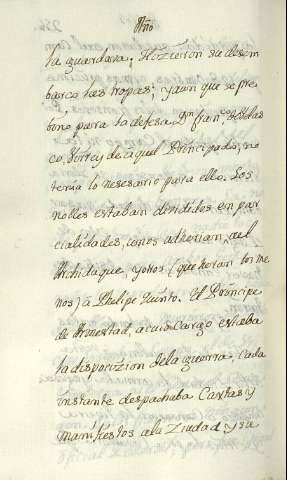 Año
la guardara. Hizieron su desem
barco las tropas, y aun que se pre
bino para la defesa Dn. Franco. de Velas
co, Virrey de aquel Principado, no
tenia lo nesesario para ello. Los
nobles estaban divididos en par
cialidades, unos adherian, ael
Archiduque, yotros (que heran los me
nos) a Phelipe Quinto. El Principe
de Armestad, acuio Cargo estaba
la disposizion dela guerra, Cada
instante despachaba Cartas y
manifiestos ala Ziudad y su